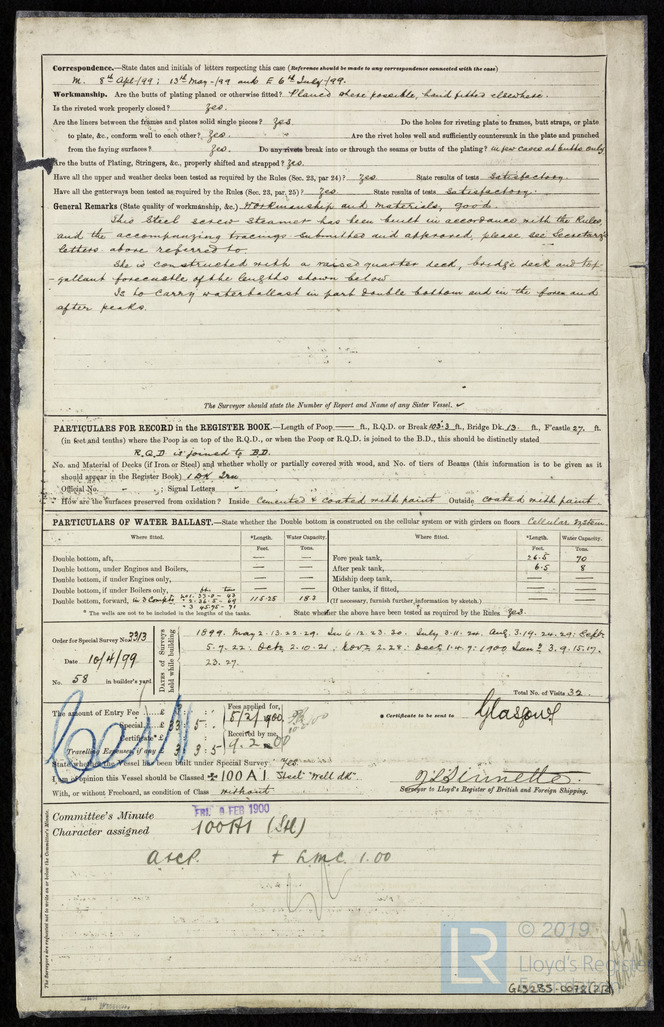 Correspondence.—State dates and initials of letters respecting this case (Reference should be made to any correspondence connected with the case)
M. 8th Apl/99; 13th May/99 and E 6th July/99.
Workmanship. Are the butts of plating planed or otherwise fitted? Planed where possible, hand fitted elsewhere.
Is the riveted work properly closed? Yes.
Are the liners between the frames and plates solid single pieces? Yes Do the holes for riveting plate to frames, butt straps, or plate
to plate, &c., conform well to each other? Yes. Are the rivet holes well and sufficiently countersunk in the plate and punched
from the faying surfaces? Yes. Do any rivets break into or through the seams or butts of the plating? in few cases at butts only
Are the butts of Plating, Stringers, &c., properly shifted and strapped? Yes.
Have all the upper and weather decks been tested as required by the Rules (Sec. 23, par 24)? Yes State results of tests Satisfactory.
Have all the gutterways been tested as required by the Rules (Sec. 23, par, 25)? Yes State results of tests Satisfactory.
General Remarks (State quality of workmanship, &c.) Workmanship and Materials, good.
This Steel screw Steamer has been built in accordance with the Rules
and the accompanying tracings submitted and approved, please see Secretary's
letters above referred to.
She is constructed with a raised quarter deck, bridge deck and top-
-gallant forecastle of the lengths shown below
Is to carry waterballast in part Double bottom and in the fore and
after peaks.
The Surveyor should state the Number of Report and Name of any Sister Vessel.
PARTICULARS FOR RECORD in the REGISTER BOOK.—Length of Poop — ft., R.Q.D. or Break 103.3 ft., Bridge Dk. 13. ft., F'castle 27. ft.
(in feet and tenths) where the Poop is on top of the R.Q.D., or when the Poop or R.Q.D. is joined to the B.D., this should be distinctly stated
R.Q.D is joined to B.D.
No. and Material of Decks (if Iron or Steel) and whether wholly or partially covered with wood, and No. of tiers of Beams (this information is to be given as it
should appear in the Register Book) 1 DK Iron
Official No. ; Signal Letters
How are the surfaces preserved from oxidation? Inside Cemented & coated with paint Outside coated with paint
PARTICULARS OF WATER BALLAST.—State whether the Double bottom is constructed on the cellular system or with girders on floors Cellular System.
Where fitted. *Length. Water Capacity. Where fitted. *Length. Water Capacity.
Feet. Tons. Feet. Tons.
Double bottom, aft, — — Fore peak tank, 26.5 70
Double bottom, under Engines and Boilers, — — After peak tank, 6.5 8
Double bottom, if under Engines only, — — Midship deep tank, — —
Double bottom, if under Boilers only, — — Other tanks, if fitted, — —
Double bottom, forward, 115.25 183 (If necessary, furnish further information by sketch.)
* The wells are not to be included in the lengths of the tanks. State whether the above have been tested as required by the Rules Yes.
Order for Special Survey No. 3313
Date 10/4/99
No. 58 in builder's yard.
DATES of Surveys held while building
1899. May 2. 13. 22. 29. Jun 6. 12. 23. 30. July 3. 11. 24. Aug. 3. 19. 24. 29: Sept
5. 7. 22: Oct 2. 10. 21: Nov 2. 28: Dec 1. 4. 7: 1900 Jan 3. 9. 15. 17.
23. 27.
Total No. of Visits 32.
The amount of Entry Fee £ : : Fees applied for,
Special £ 33 : 5 : 15/2/1900.
Certificate* : : Received by me,
Travelling Expenses, if any £ 3 : 3 : 5 9.2.00
* Certificate to be sent to Glasgow
State whether the Vessel has been built under Special Survey Yes.
In opinion this Vessel should be Classed ✠ 100 A 1 Steel "Well dk"
With, or without Freeboard, as condition of Class without
Surveyor to Lloyd's Register of British and Foreign Shipping.
Committee's Minute FRI. 9 FEB 1900
Character assigned 100A1 (Stl)
A&CP. + LMC 1.00
The Surveyors are requested not to write on or below the Committee's Minute.
© 2019
LR Lloyd's Register
GLS285-0078(2/2)